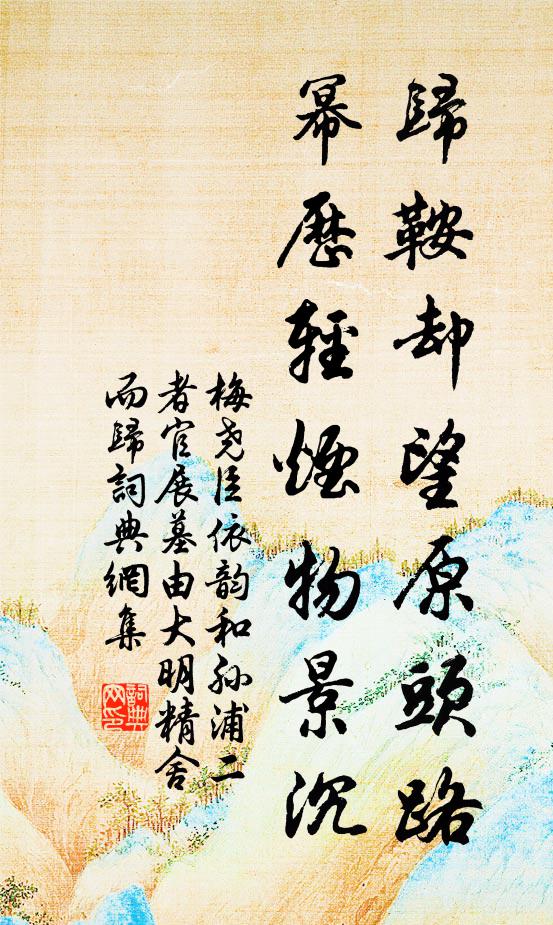 歸鞍却望原頭路
幂歷輕煙物景沉
梅堯臣依韵和孙浦二
者官展墓由大明精舍
而歸詞典網集
詞典网印